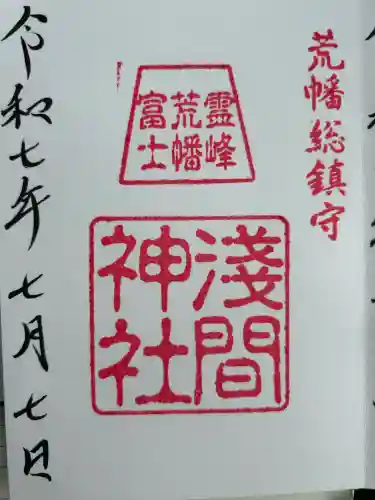 荒幡総鎮守
靈峰
荒幡
富士
淺間
神社
令和七年 七月七日